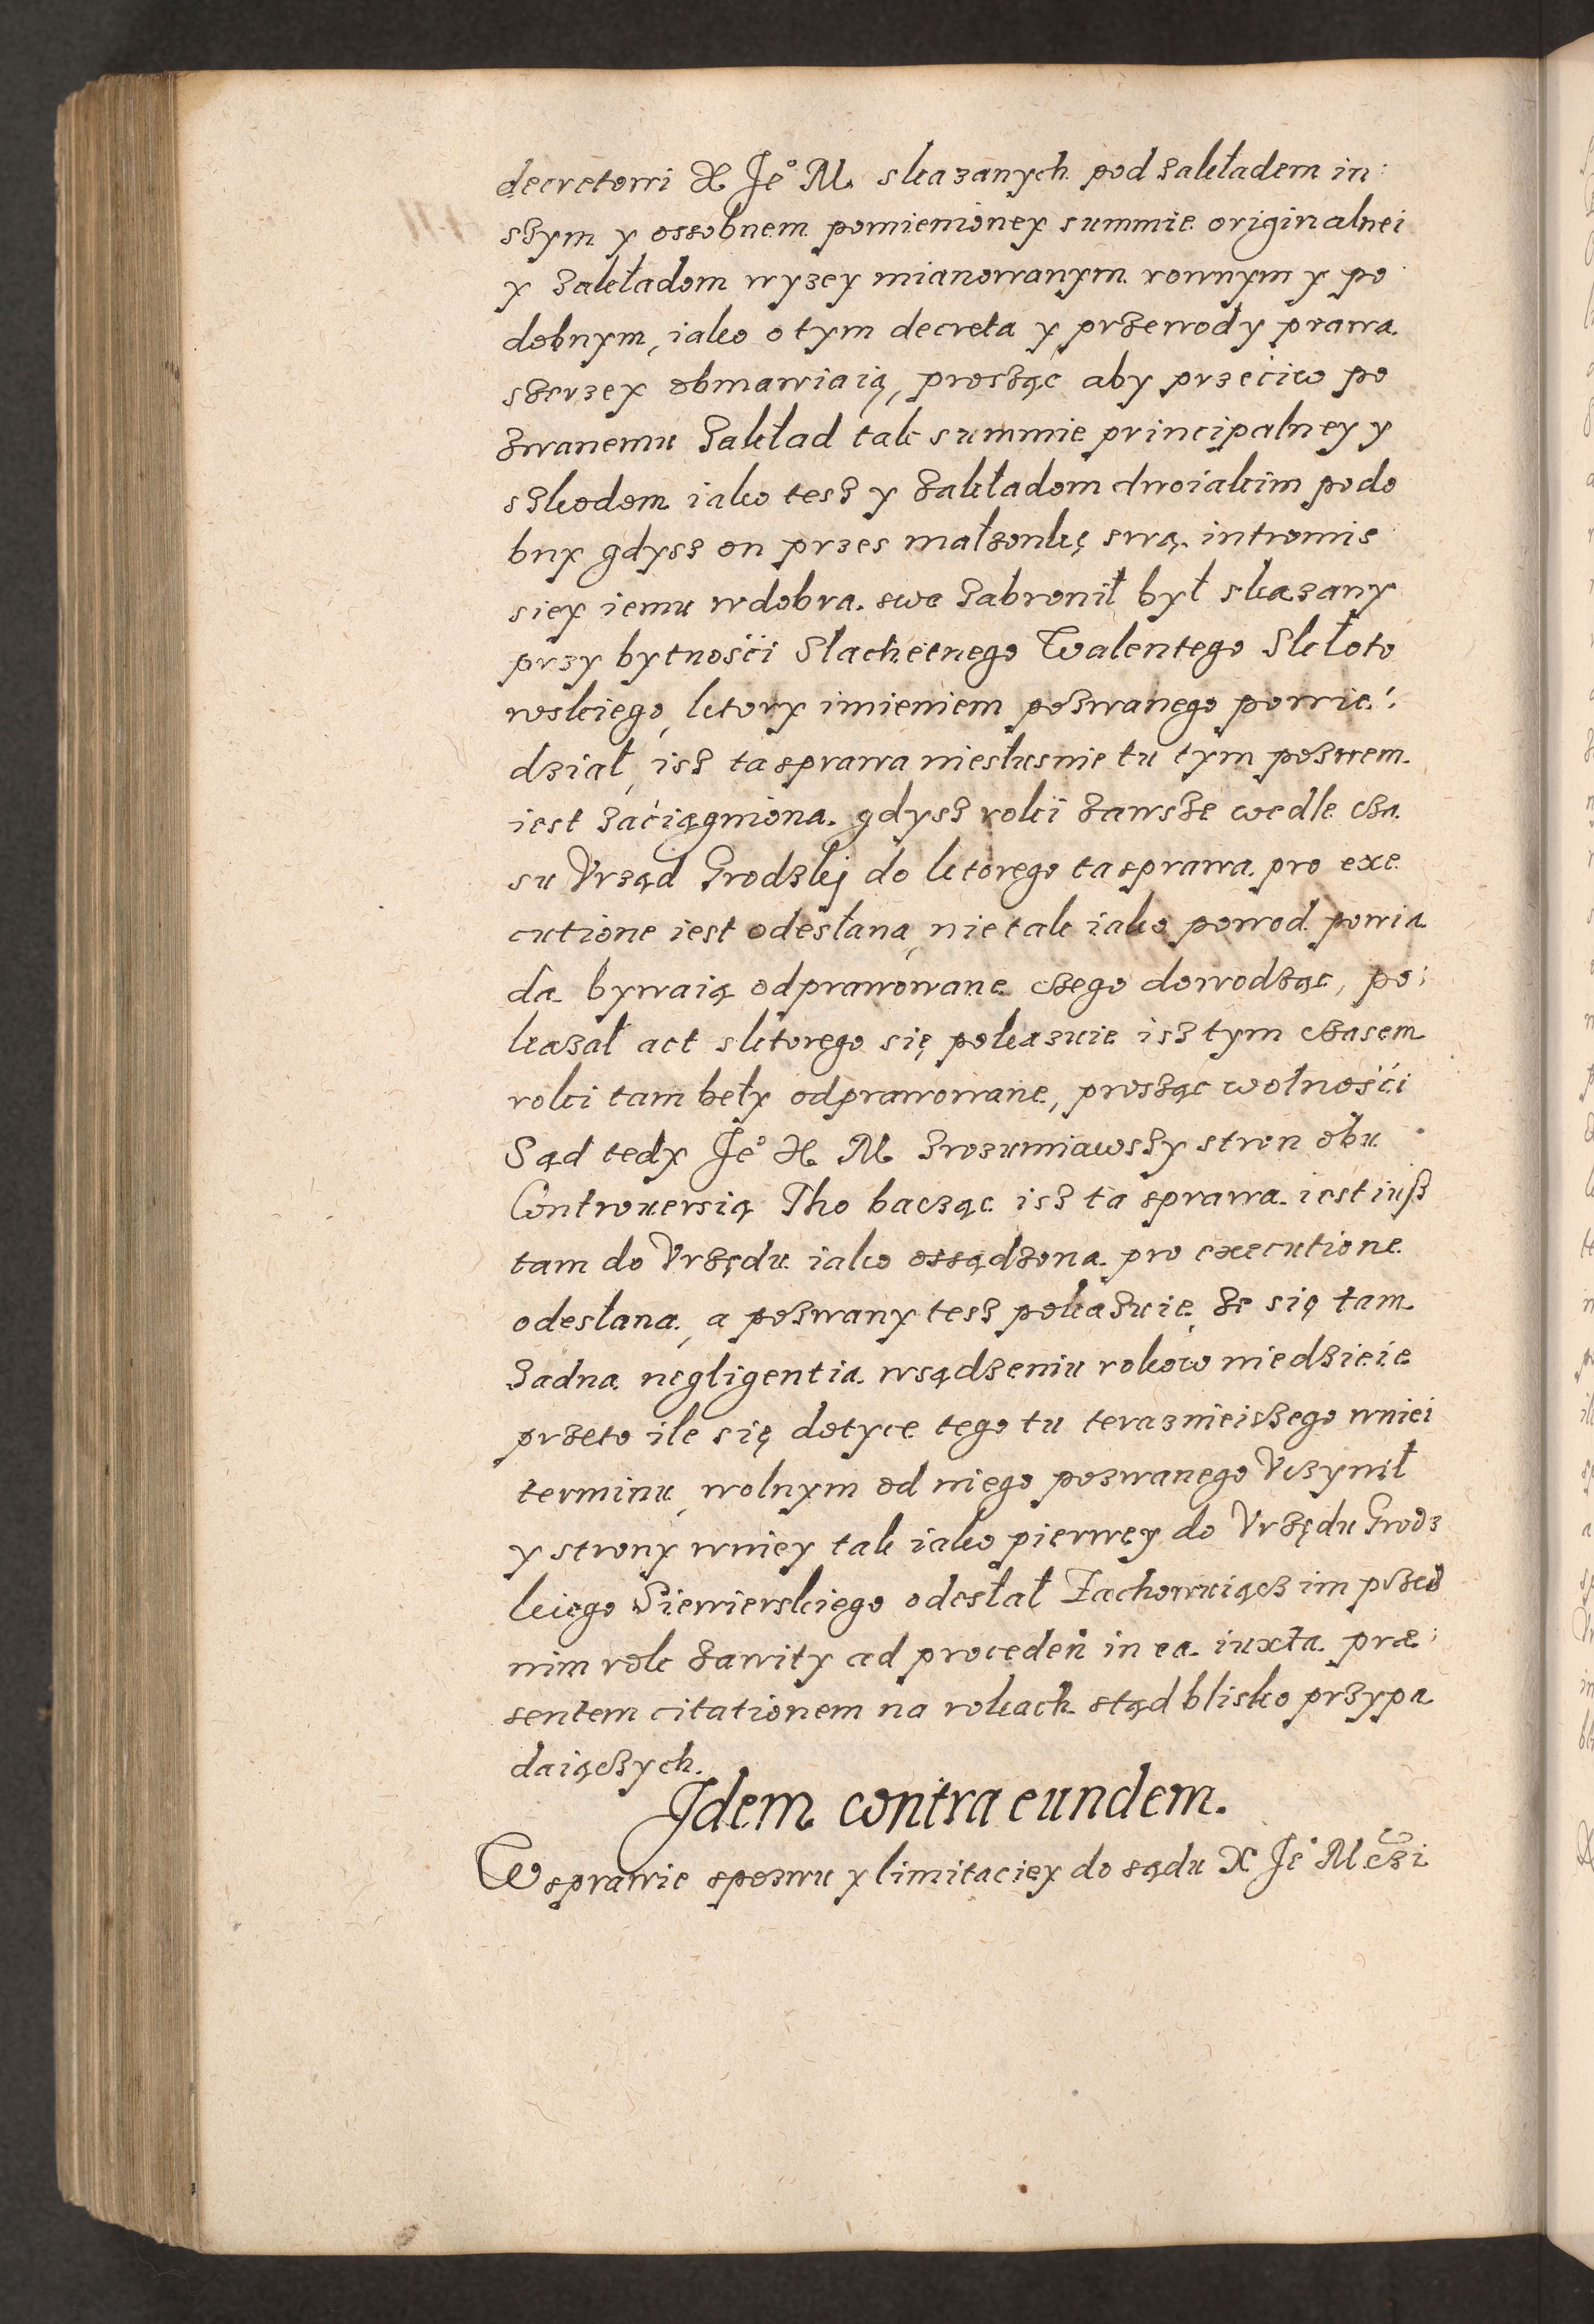 decretowi X Je° M. skazanych pod zakładem in:
szym y ossobnem pomienioney summie originalnei
y zakładom wyzey mianowanym rownym y po
dobnym, iako o tym decreta y przewody prawa
szerzey obmawiaią, prosząc aby przeciw po
zwanemu zakład tak summie principalney y
szkodom iako tesz y zakładom dwoiakim podo
bny gdysz on przes małzonkę swą intromis
siey iemu wdobra swe zabronił był skazany
przy bytnośći Slachetnego Walentego Skłoto
wskiego, ktory imieniem pozwanego powie:
dział, isz ta sprawa niesłusnie tu tym pozwem
iest zaciągniona gdysz roki zawsze wedle cza
su Vrząd Grodzkj do ktorego ta sprawa pro exe
cutione iest odesłana, nie tak iako powod powia
da bywaią odprawowane czego dowodząc, po:
kazał act sktorego się pokazuie isz tym czasem
roki tam beły odprawowane, prosząc wolnośći
Sąd tedy Je° X M zrozumiawszy stron obu
Controuersią Tho bacząc isz ta sprawa iest iuß
tam do Vrzędu iako ossądzona pro executione
odesłana, a pozwany tesz pokazuie, ze się tam
zadna negligentia wsądzeniu rokow niedzieie
przeto ile się dotyce tego tu teraznieiszego wniei
terminu, wolnym od niego pozwanego Vczynił
y strony wniey tak iako pierwey do Vrzędu Grodz
kiego Siewierskiego odesłał Zachowuiącz im przed
nim rok zawity ad proceden̄ in ea iuxta præ:
sentem citationem na rokach stąd blisko przypa
daiączych.
Jdem contra eundem.
W sprawie spozwu y limitaciey do sądu X Je° M czi